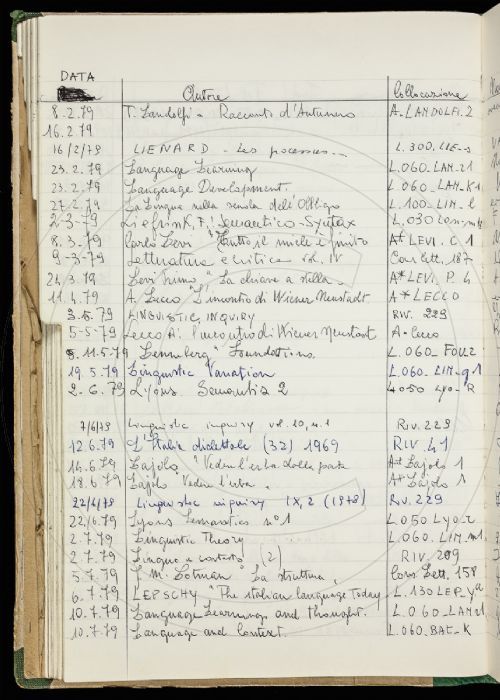 DATA
Autore Collocazione
8.2.79 T. Landolfi - Racconto d'Autunno A-LANDOLFI.2
16.2.79
16/2/79 LIENARD - Les processus... L.300.LIE-
23.2.79 Language Learning L.060-LAN-21
23.2.79 Language Development. L.060-LAN-K1
27.2.79 La Lingua nella scuola dell'Obbligo L.100-LIM-
2-3-79 Liefrink, F., Semantico-Syntax L.030
8.3.79 Carlo Levi "Tutto il miele è finito A* LEVI. C. 1
9-3-79 Letteratura e critica vol. IV Cons Lett. 187
24.3.79 Levi Primo "La chiave a stella" A* LEVI. P. 4
11.4.79 A. Lecco L'incontro di Wiener Neustadt. A*LECCO
3.5.79 LINGUISTIC INQUIRY RIV. 229
5-5-79 Lecco A: l'incontro di Wiener Neustadt A-Lecco
5.11.5-79 Lenneberg "Foundations. L.060-FOU2
19.5.79 Linguistic Variation L.060-LIN-g1
2.6.79 Lyons. Semantics 2 L050 Lyo-R
7/6/79 Linguistic inquiry vol. 10, n. 1 Riv. 229
12.6.79 L'Italia dialettale (32) 1969 RIV. 41
14.6.79 Lajolo "Veder l'erba dalla parte A* Lajolo 1
18.6.79 Lajolo "Veder l'erba" A* Lajolo 1
22/6/79 Linguistic inquiry IX, 2 (1978) Riv. 229
22/6.79 Lyons Semantics n° 1 L050 Lyo-
2.7.79 Linguistic Theory L.060.LIN.
2.7.79 Lingua e contesto (2) RIV. 209
5.7.79 J. M. Lotman "La struttura, Cons. Lett. 158
6.7.79 LEPSCHY "The italian language Today L.130LEP.
10.7.79 Language Learning and thought. L.060-LAN
10.7.79 Language and Context. L.060.BAT-K